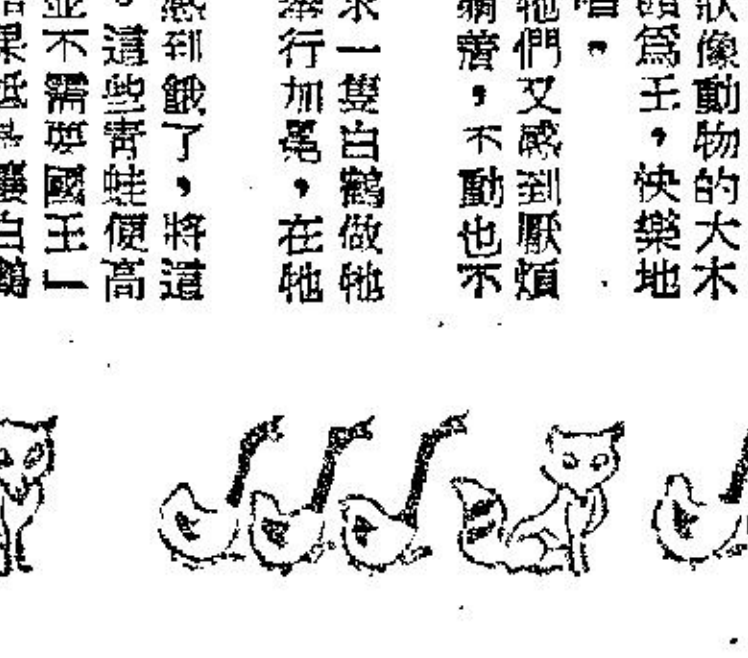 狀像動物的大木
頭爲王，快樂地
唱。
牠們又感到厭煩
躺着，不動也不
求一隻白鶴做牠
舉行加冕，在牠
感到餓了，將這
。這些青蛙便高
並不需要國王」
白鶴